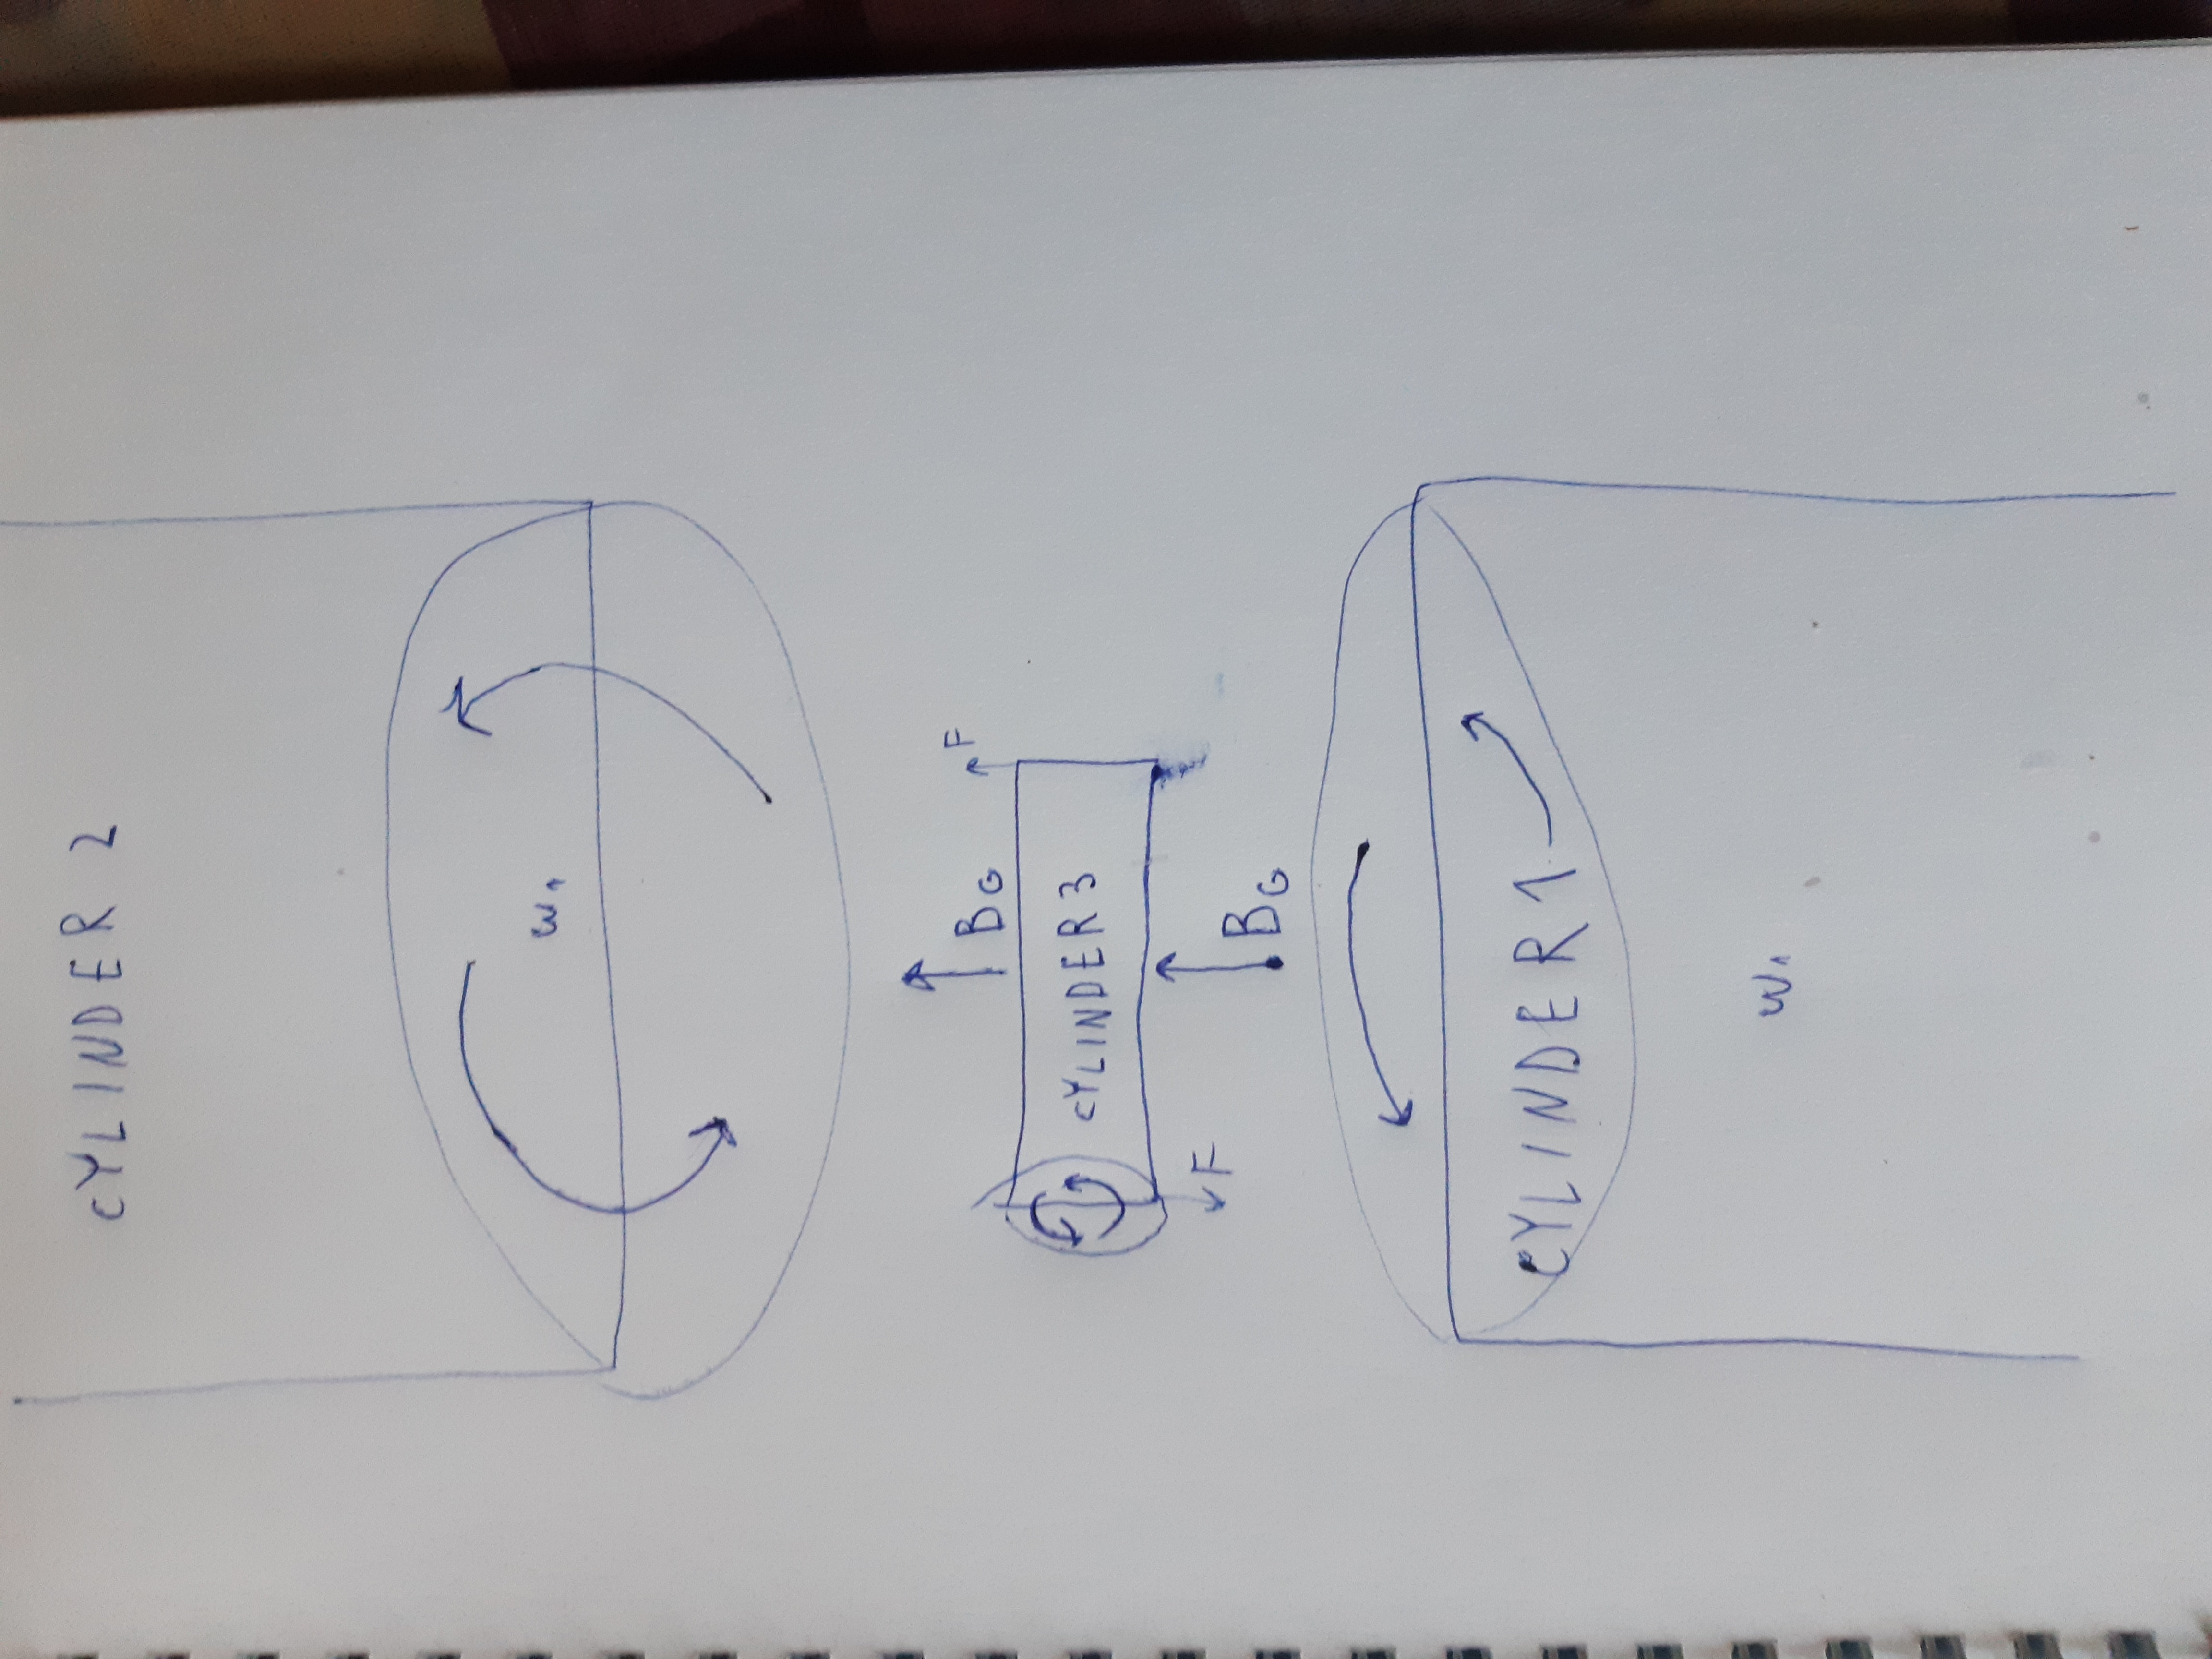 CYLINDER 2
w₁
B_G
F
CYLINDER 3
F
B_G
CYLINDER 1
w₁